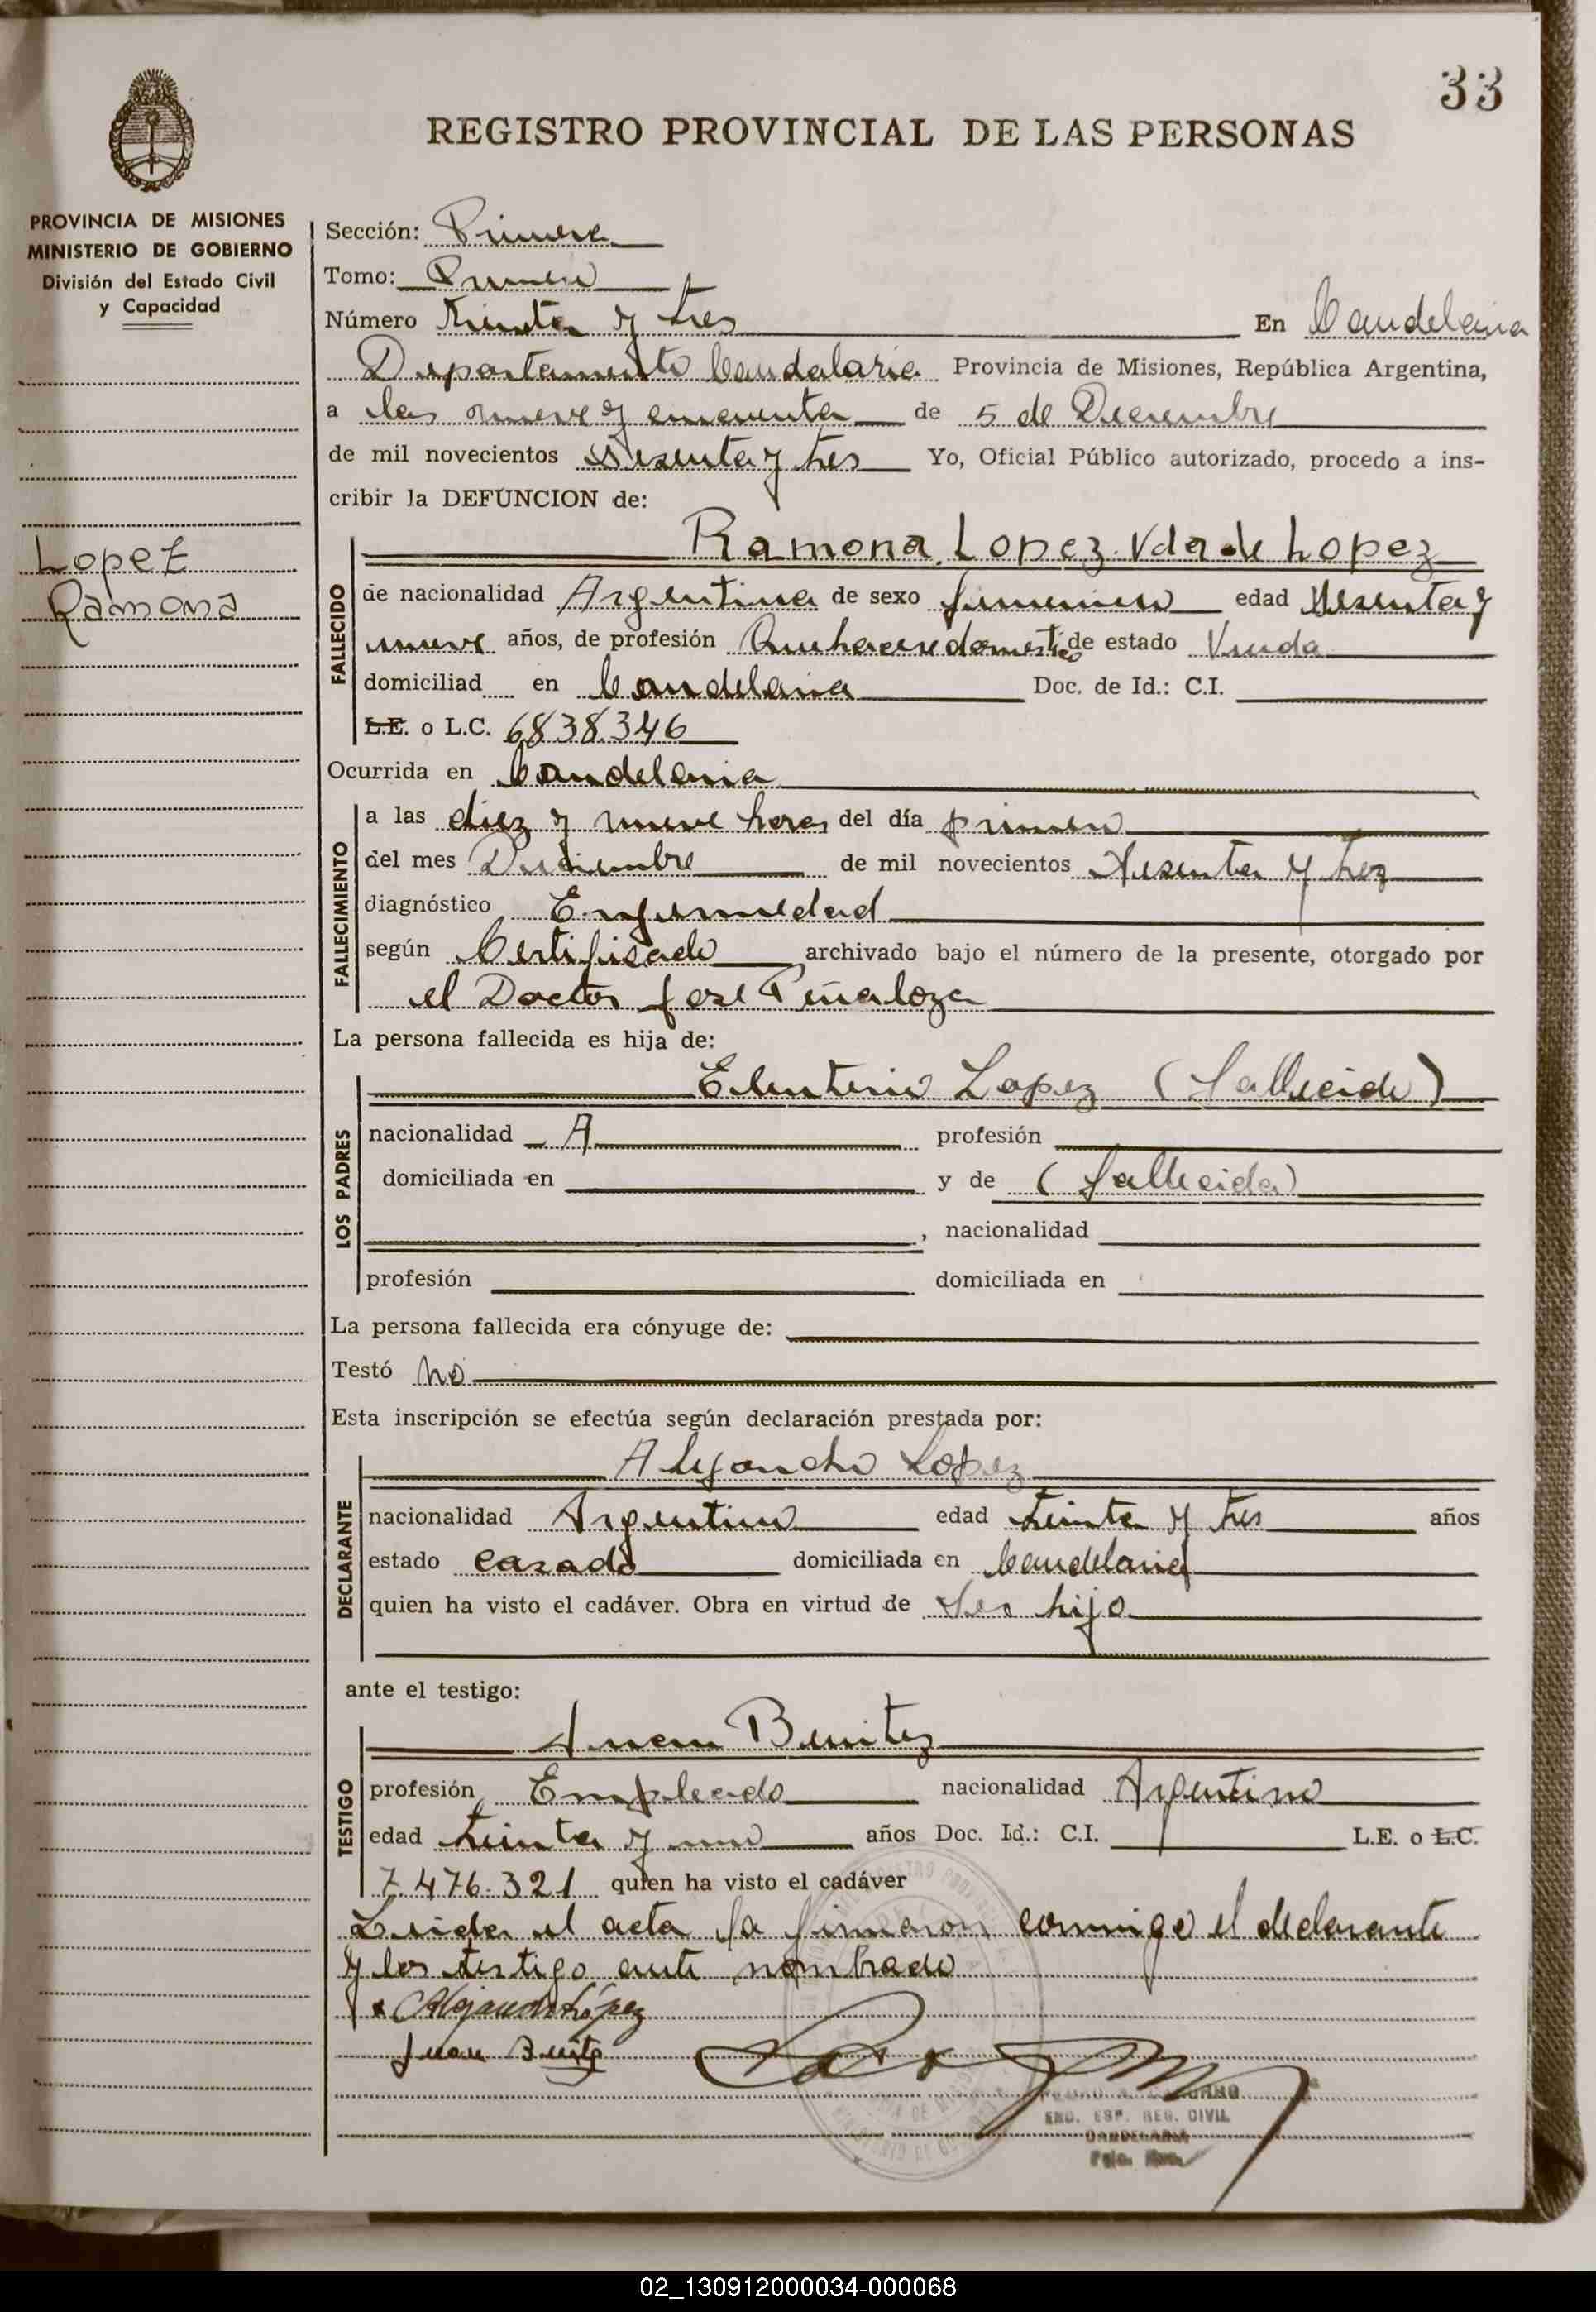 33
REGISTRO PROVINCIAL DE LAS PERSONAS
PROVINCIA DE MISIONES
MINISTERIO DE GOBIERNO
División del Estado Civil
y Capacidad
Lopez
Ramona
Sección: Primera
Tomo: Primero
Número Treinta y tres En Candelaria
Departamento Candelaria Provincia de Misiones, República Argentina,
a las nueve y cincuenta de 5 de Diciembre
de mil novecientos Sesenta y tres Yo, Oficial Público autorizado, procedo a ins-
cribir la DEFUNCION de:
Ramona Lopez Vda de Lopez
FALLECIDO
de nacionalidad Argentina de sexo femenino edad sesenta y
nueve años, de profesión Quehacere domestico de estado Viuda
domiciliad en Candelaria Doc. de Id.: C.I.
L.E. o L.C. 6838.346
Ocurrida en Candelaria
FALLECIMIENTO
a las diez y nueve horas del día primero
del mes Diciembre de mil novecientos sesenta y trez
diagnóstico Enfermedad
según Certificado archivado bajo el número de la presente, otorgado por
el Doctor José Peñaloza
La persona fallecida es hija de:
LOS PADRES
Eleuterio Lopez (fallecido)
nacionalidad A profesión
domiciliada en y de (fallecida)
, nacionalidad
profesión domiciliada en
La persona fallecida era cónyuge de:
Testó no
Esta inscripción se efectúa según declaración prestada por:
DECLARANTE
Alejandro Lopez
nacionalidad Argentino edad treinta y tres años
estado casado domiciliada en Candelaria
quien ha visto el cadáver. Obra en virtud de ser hijo
ante el testigo:
TESTIGO
Juan Benitez
profesión Empleado nacionalidad Argentino
edad treinta y uno años Doc. Id.: C.I. L.E. o L.C.
7.476.321 quien ha visto el cadáver
Leida el acta la firmaron conmigo el declarante
y los testigo ante nombrado
Alejandro López
Juan Benitez
ENC. ESP. REG. CIVIL
CANDELARIA
02_130912000034-000068